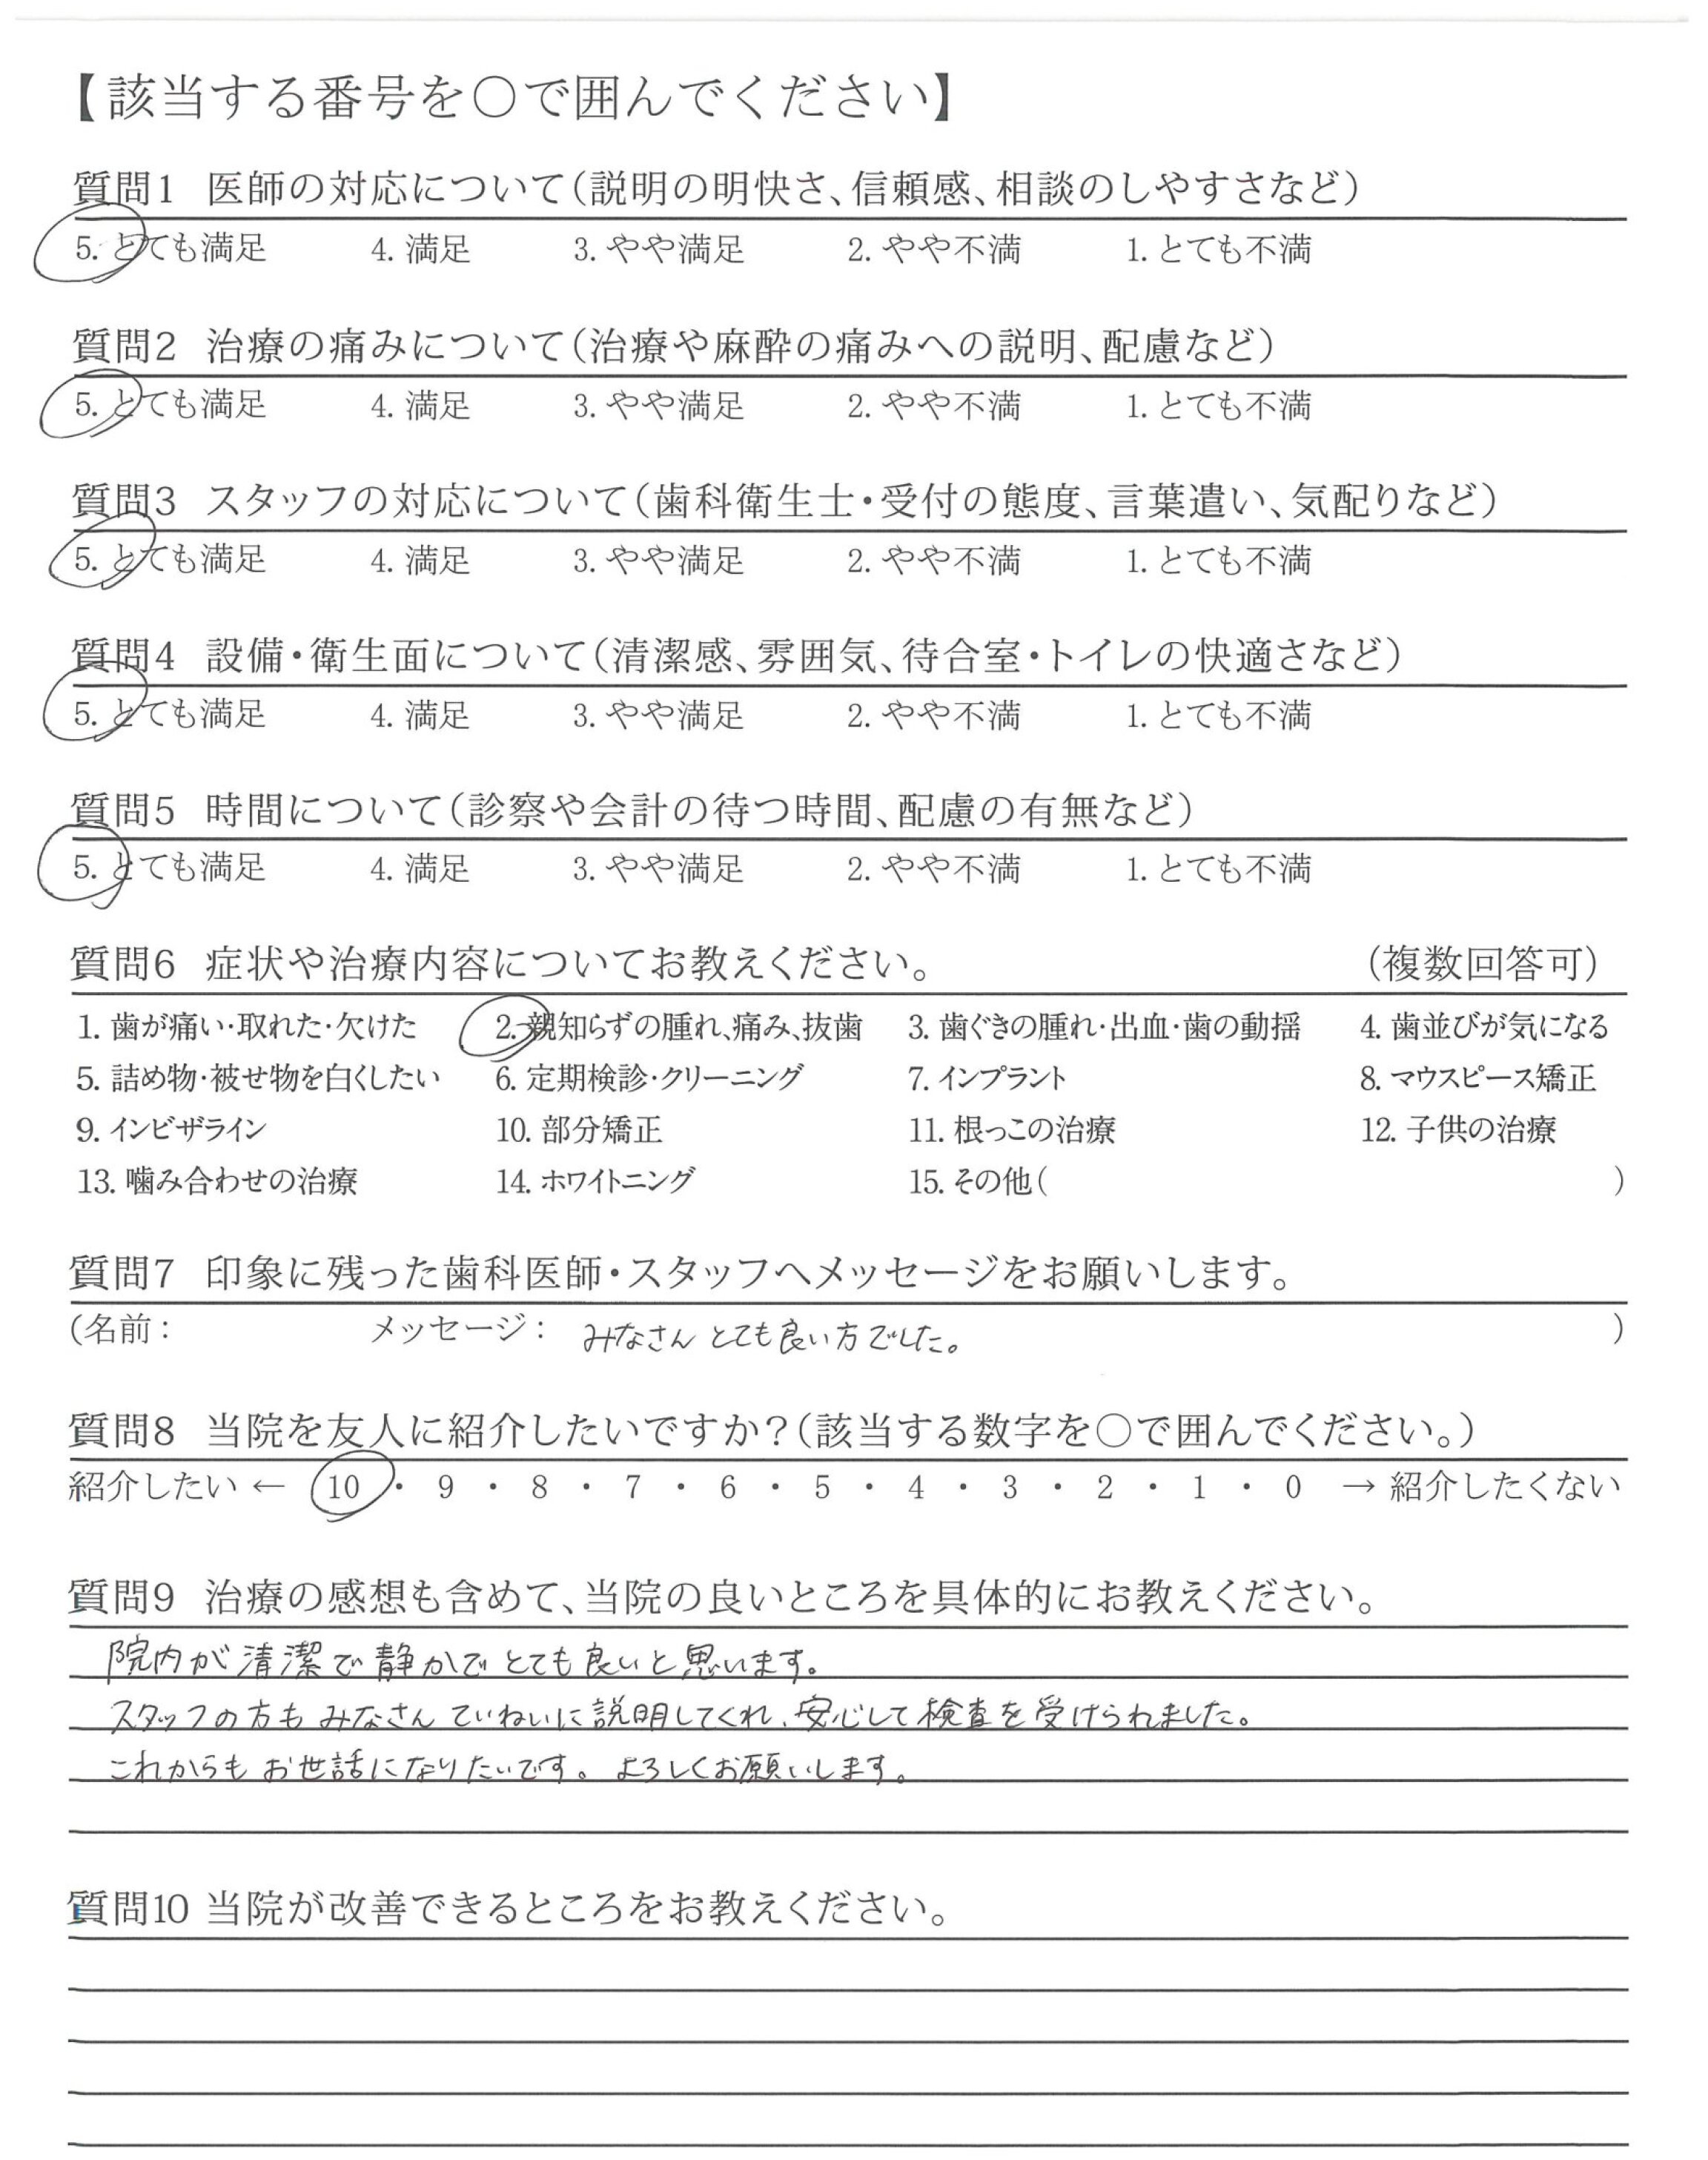 【該当する番号を○で囲んでください】
質問1 医師の対応について(説明の明快さ、信頼感、相談のしやすさなど)
5. とても満足 4. 満足 3. やや満足 2. やや不満 1. とても不満
質問2 治療の痛みについて(治療や麻酔の痛みへの説明、配慮など)
5. とても満足 4. 満足 3. やや満足 2. やや不満 1. とても不満
質問3 スタッフの対応について(歯科衛生士・受付の態度、言葉遣い、気配りなど)
5. とても満足 4. 満足 3. やや満足 2. やや不満 1. とても不満
質問4 設備・衛生面について(清潔感、雰囲気、待合室・トイレの快適さなど)
5. とても満足 4. 満足 3. やや満足 2. やや不満 1. とても不満
質問5 時間について(診察や会計の待つ時間、配慮の有無など)
5. とても満足 4. 満足 3. やや満足 2. やや不満 1. とても不満
質問6 症状や治療内容についてお教えください。 (複数回答可)
1. 歯が痛い・取れた・欠けた 2. 親知らずの腫れ、痛み、抜歯 3. 歯ぐきの腫れ・出血・歯の動揺 4. 歯並びが気になる
5. 詰め物・被せ物を白くしたい 6. 定期検診・クリーニング 7. インプラント 8. マウスピース矯正
9. インビザライン 10. 部分矯正 11. 根っこの治療 12. 子供の治療
13. 噛み合わせの治療 14. ホワイトニング 15. その他( )
質問7 印象に残った歯科医師・スタッフへメッセージをお願いします。
(名前: メッセージ: みなさん とても良い方でした。 )
質問8 当院を友人に紹介したいですか?(該当する数字を○で囲んでください。)
紹介したい ← 10 ・ 9 ・ 8 ・ 7 ・ 6 ・ 5 ・ 4 ・ 3 ・ 2 ・ 1 ・ 0 → 紹介したくない
質問9 治療の感想も含めて、当院の良いところを具体的にお教えください。
院内が清潔で静かでとても良いと思います。
スタッフの方も みなさん ていねいに説明してくれ、安心して検査を受けられました。
これからも お世話になりたいです。よろしくお願いします。
質問10 当院が改善できるところをお教えください。